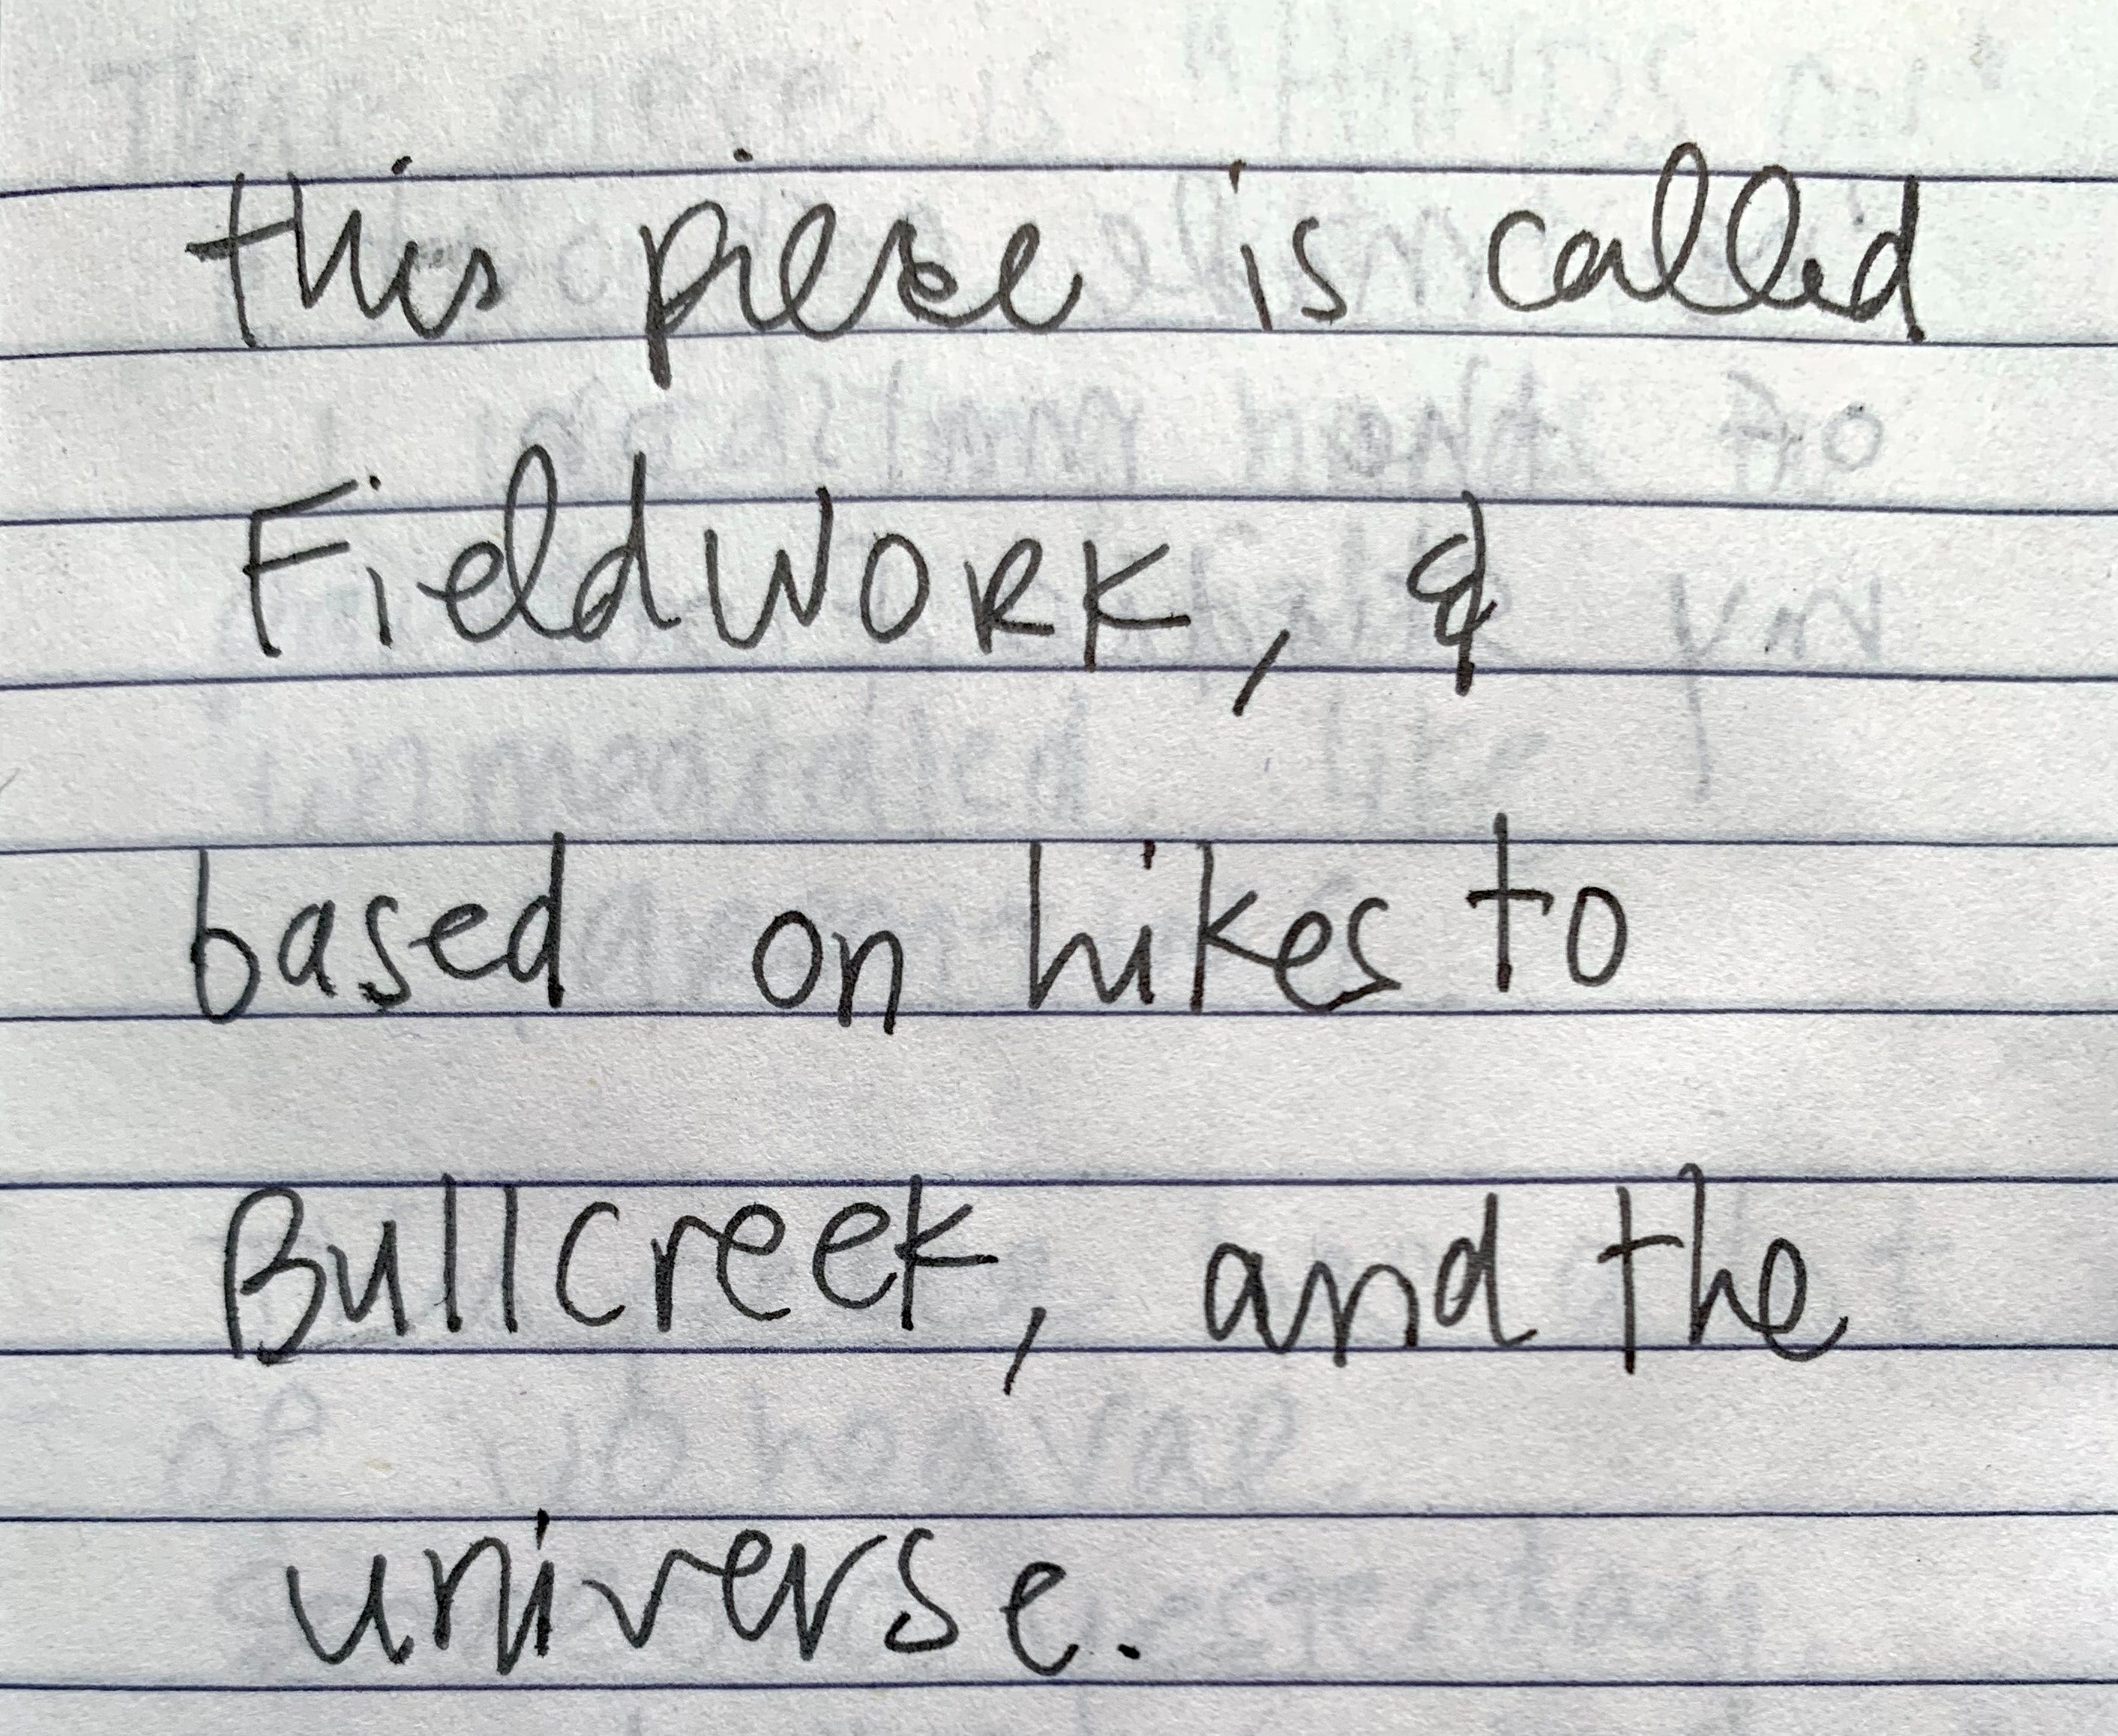 this piece is called
FieldWORK, &
based on hikes to
Bullcreek, and the
universe.